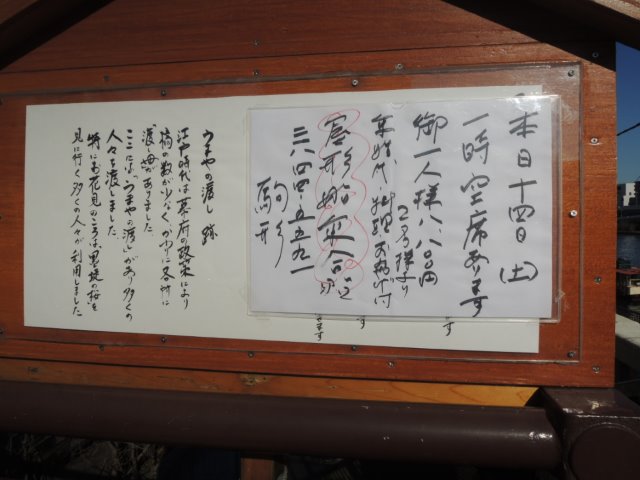 本日十四日(土)
一時空席あります
御一人様八、八〇〇円
2名様より
乗船代・御料理・お持ち帰付
屋形船乗合
三八四四・五五九一
駒形
ます
す
きます
うまやの渡し跡
江戸時代は幕府の政策により
橋の数が少なく かわりに各所に
「渡し」場がありました
ここには、「うまやの渡し」があり多くの
人々を渡しました
特にお花見のころは、墨堤の桜を
見に行く多くの人々が利用しました